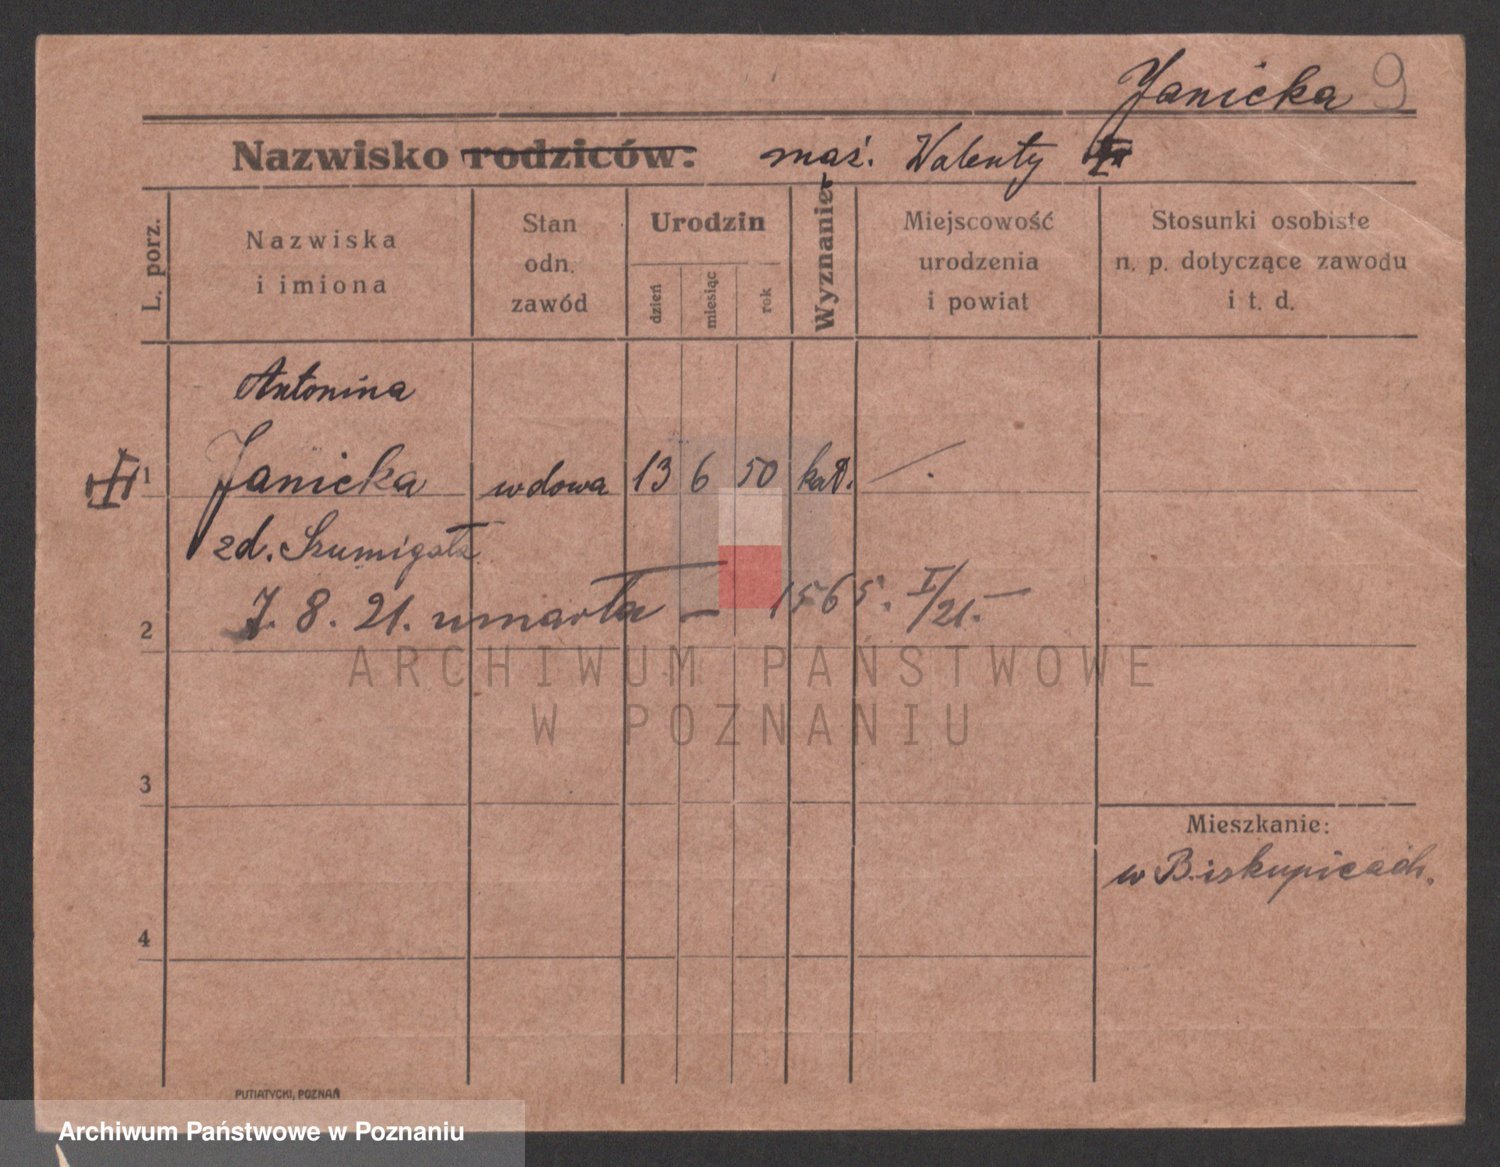 Janicka 9
Nazwisko rodziców: mąż. Walenty
L. porz.
Nazwiska
i imiona
Stan
odn.
zawód
Urodzin
dzień
miesiąc
rok
Wyznanie
Miejscowość
urodzenia
i powiat
Stosunki osobiste
n. p. dotyczące zawodu
i t. d.
Antonina
1 Janicka wdowa 13 6 50 kat.
zd. Szumigała
7. 8. 21. umarła – 1565. I/21.–
2
3
4
Mieszkanie:
w Biskupicach.
ARCHIWUM PAŃSTWOWE
W POZNANIU
PUTIATYCKI, POZNAŃ
Archiwum Państwowe w Poznaniu